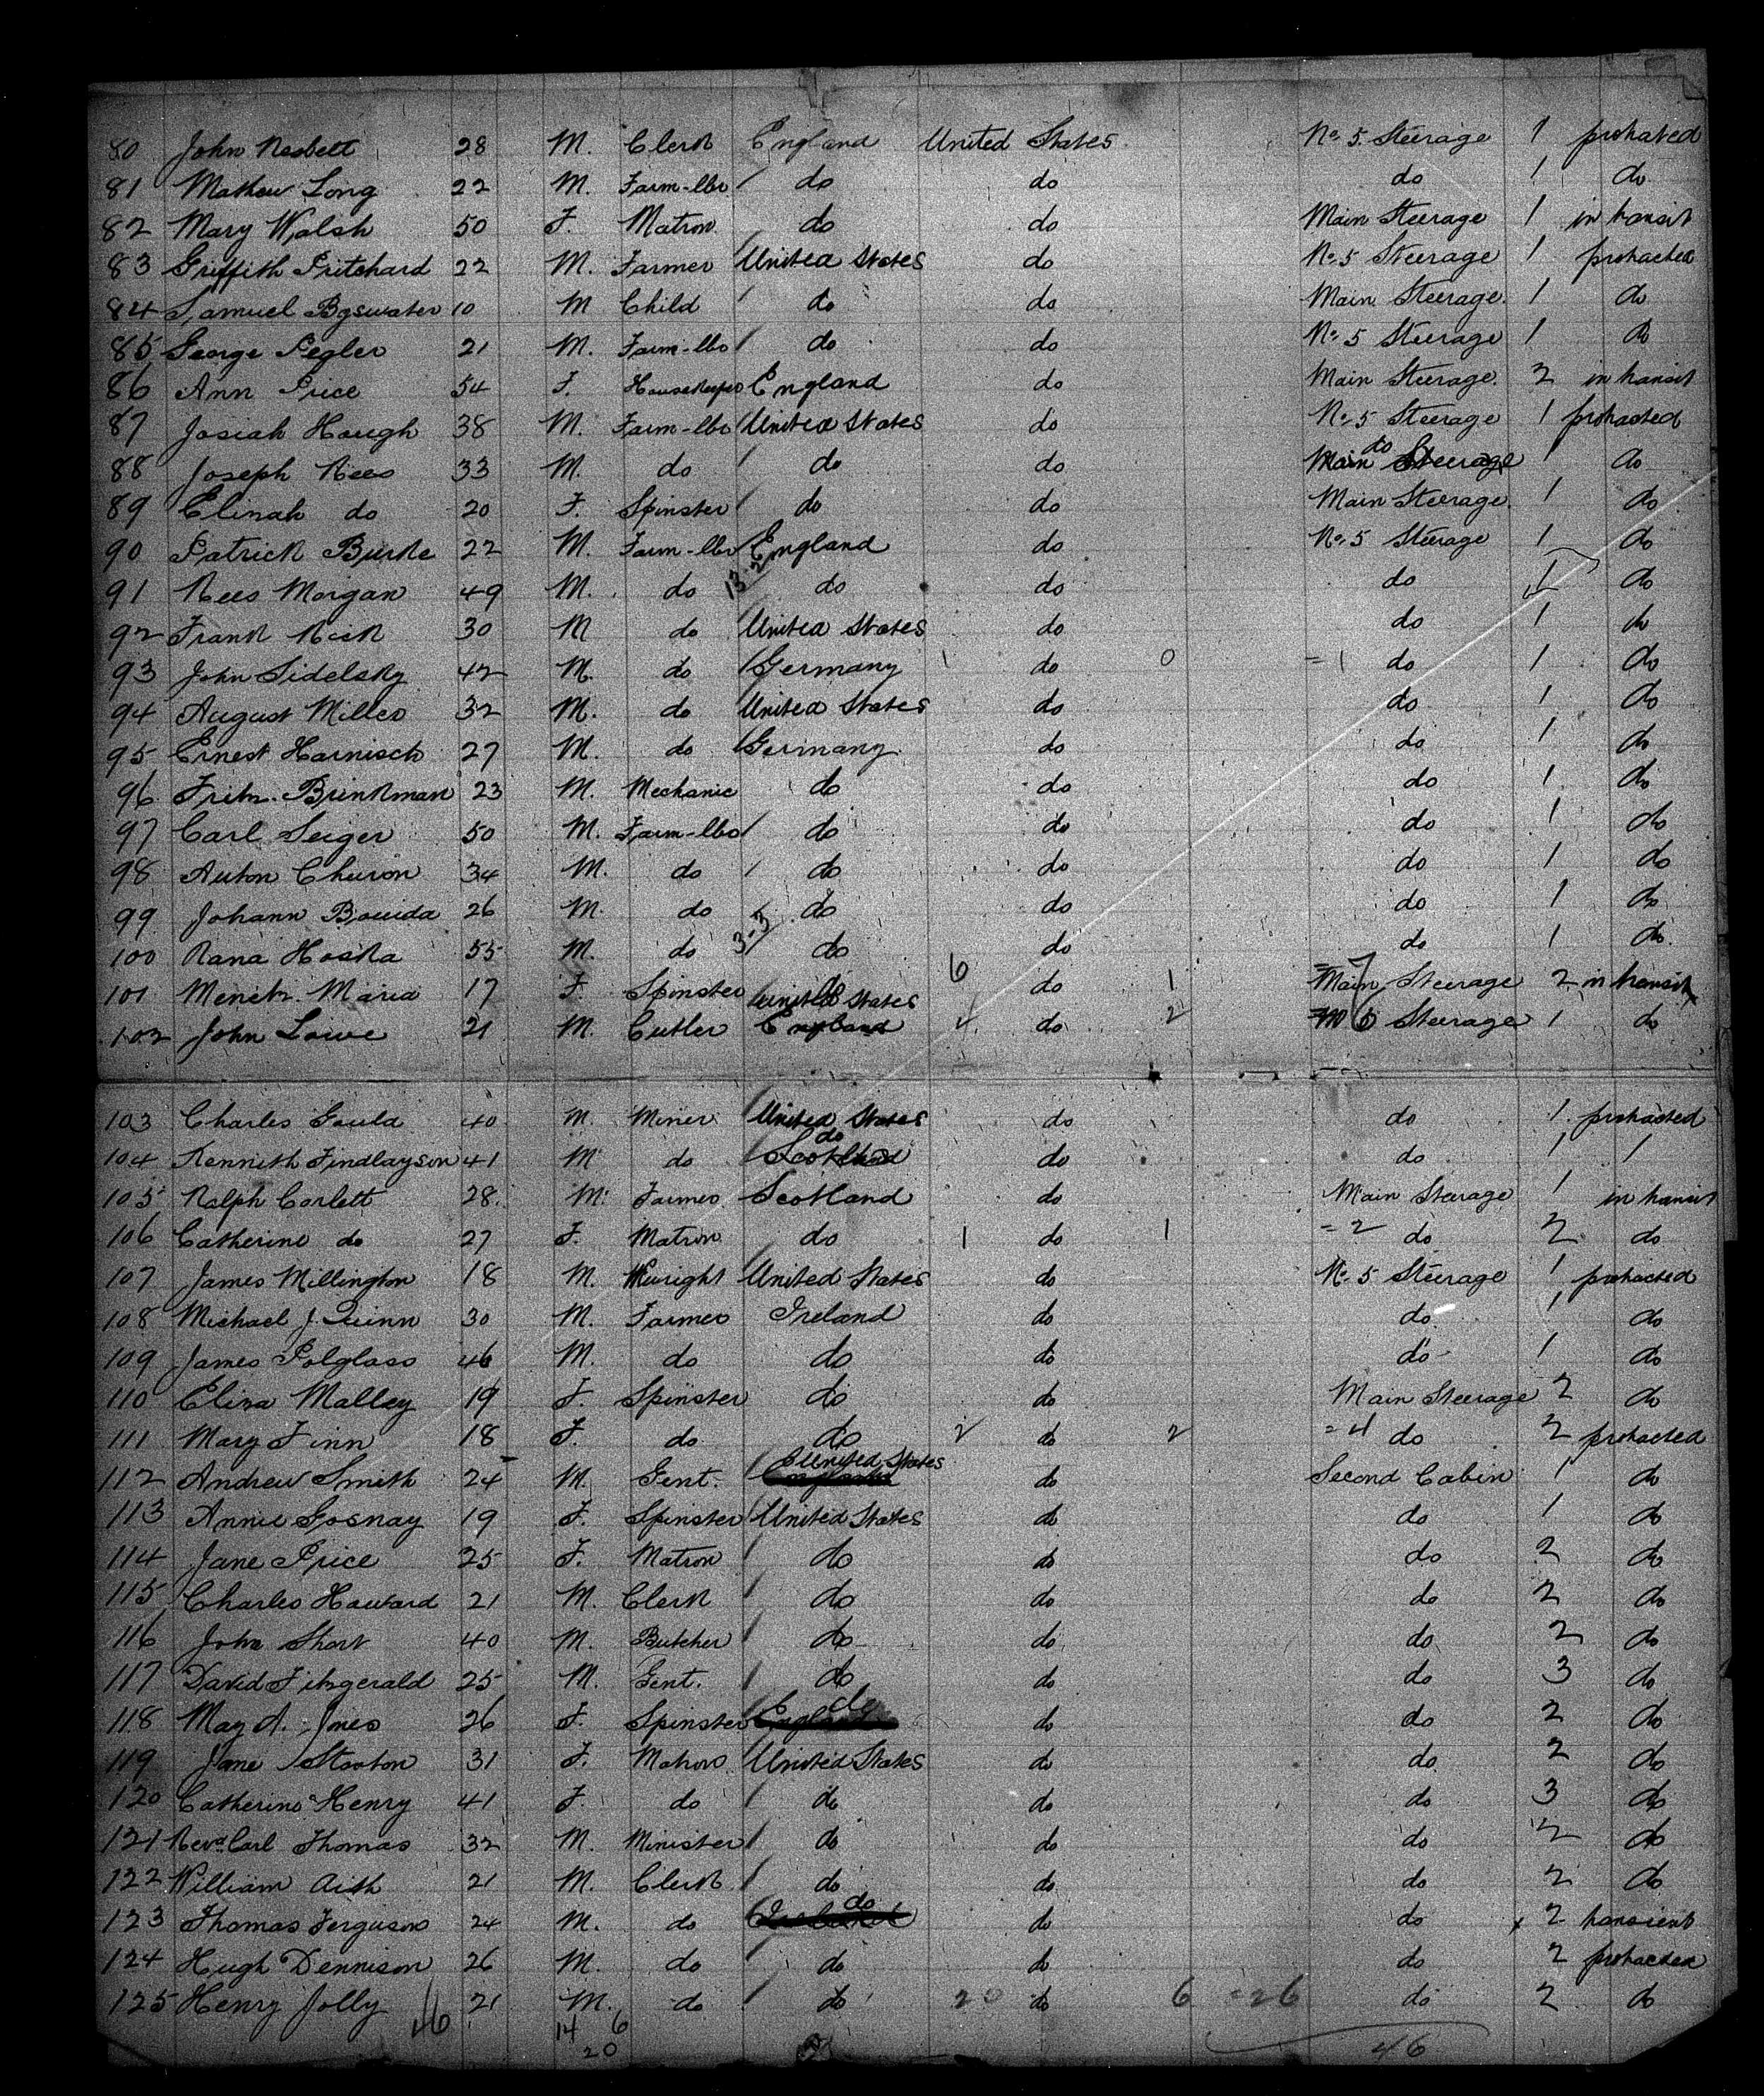 80 John Nesbett 28 M. Clerk England United States No. 5 Steerage 1 protracted
81 Mathew Long 22 M. Farm-lbr do do do 1 do
82 Mary Walsh 50 F. Matron do do Main Steerage 1 in transit
83 Griffith Pritchard 22 M. Farmer United States do No. 5 Steerage 1 protracted
84 Samuel Bgswater 10 M Child do do Main Steerage 1 do
85 George Pegler 21 M. Farm-lbr do do No. 5 Steerage 1 do
86 Ann Price 54 F. Housekeeper England do Main Steerage 2 in transit
87 Josiah Hough 38 M. Farm-lbr United States do No. 5 Steerage 1 protracted
88 Joseph Rees 33 M. do do do do 1 do
89 Elinah do 20 F. Spinster do do Main Steerage 1 do
90 Patrick Burke 22 M. Farm-lbr England do No. 5 Steerage 1 do
91 Rees Morgan 49 M. do do do do 1 do
92 Frank Risk 30 M do United States do do 1 do
93 John Sidelsky 42 M. do Germany 1 do 0 = 1 do 1 do
94 August Miller 32 M. do United States do do 1 do
95 Ernest Harnisch 27 M. do Germany do do 1 do
96 Fritz Brinkman 23 M. Mechanic do do do 1 do
97 Carl Seiger 50 M. Farm-lbr do do do 1 do
98 Anton Churon 34 M. do do do do 1 do
99 Johann Bouida 26 M. do do do do 1 do
100 Nana Hoska 55 M. do do do do 1 do
101 Maria 17 F. Spinster do 6 do 1 = 7 Main Steerage 2 in transit
102 John Lowe 21 M. Cutler United States do 2 Steerage 1 do
103 Charles Gould 40 M. Miner United States do do 1 protracted
104 Kenneth Findlayson 41 M do do do do 1
105 Ralph Corlett 28 M. Farmer Scotland do Main Steerage 1 in transit
106 Catherine do 27 F. Matron do 1 do 1 = 2 do 2 do
107 James Millington 18 M. United States do No. 5 Steerage 1 protracted
108 Michael J. Quinn 30 M. Farmer Ireland do do 1 do
109 James Polglass 46 M. do do do do 1 do
110 Eliza Malley 19 F. Spinster do do Main Steerage 2 do
111 Mary Finn 18 F. do do 2 do 2 = 4 do 2 protracted
112 Andrew Smith 24 M. Gent. United States do Second Cabin 1 do
113 Annie Gosnay 19 F. Spinster United States do do 1 do
114 Jane Price 25 F. Matron do do do 2 do
115 Charles Howard 21 M. Clerk do do do 2 do
116 John Short 40 M. Butcher do do do 2 do
117 David Fitzgerald 25 M. Gent. do do do 3 do
118 May A. Jones 26 F. Spinster do do do 2 do
119 Jane Stoxton 31 F. Matron United States do do 2 do
120 Catherine Henry 41 F. do do do do 3 do
121 Revd. Carl Thomas 32 M. Minister do do do 2 do
122 William Aith 21 M. Clerk do do do 2 do
123 Thomas Ferguson 24 M. do do do do x 2 transient
124 Hugh Dennison 26 M. do do do do 2 protracted
125 Henry Jolly 21 M. do do 20 do 6 = 26 do 2 do
46 14 6
20 46